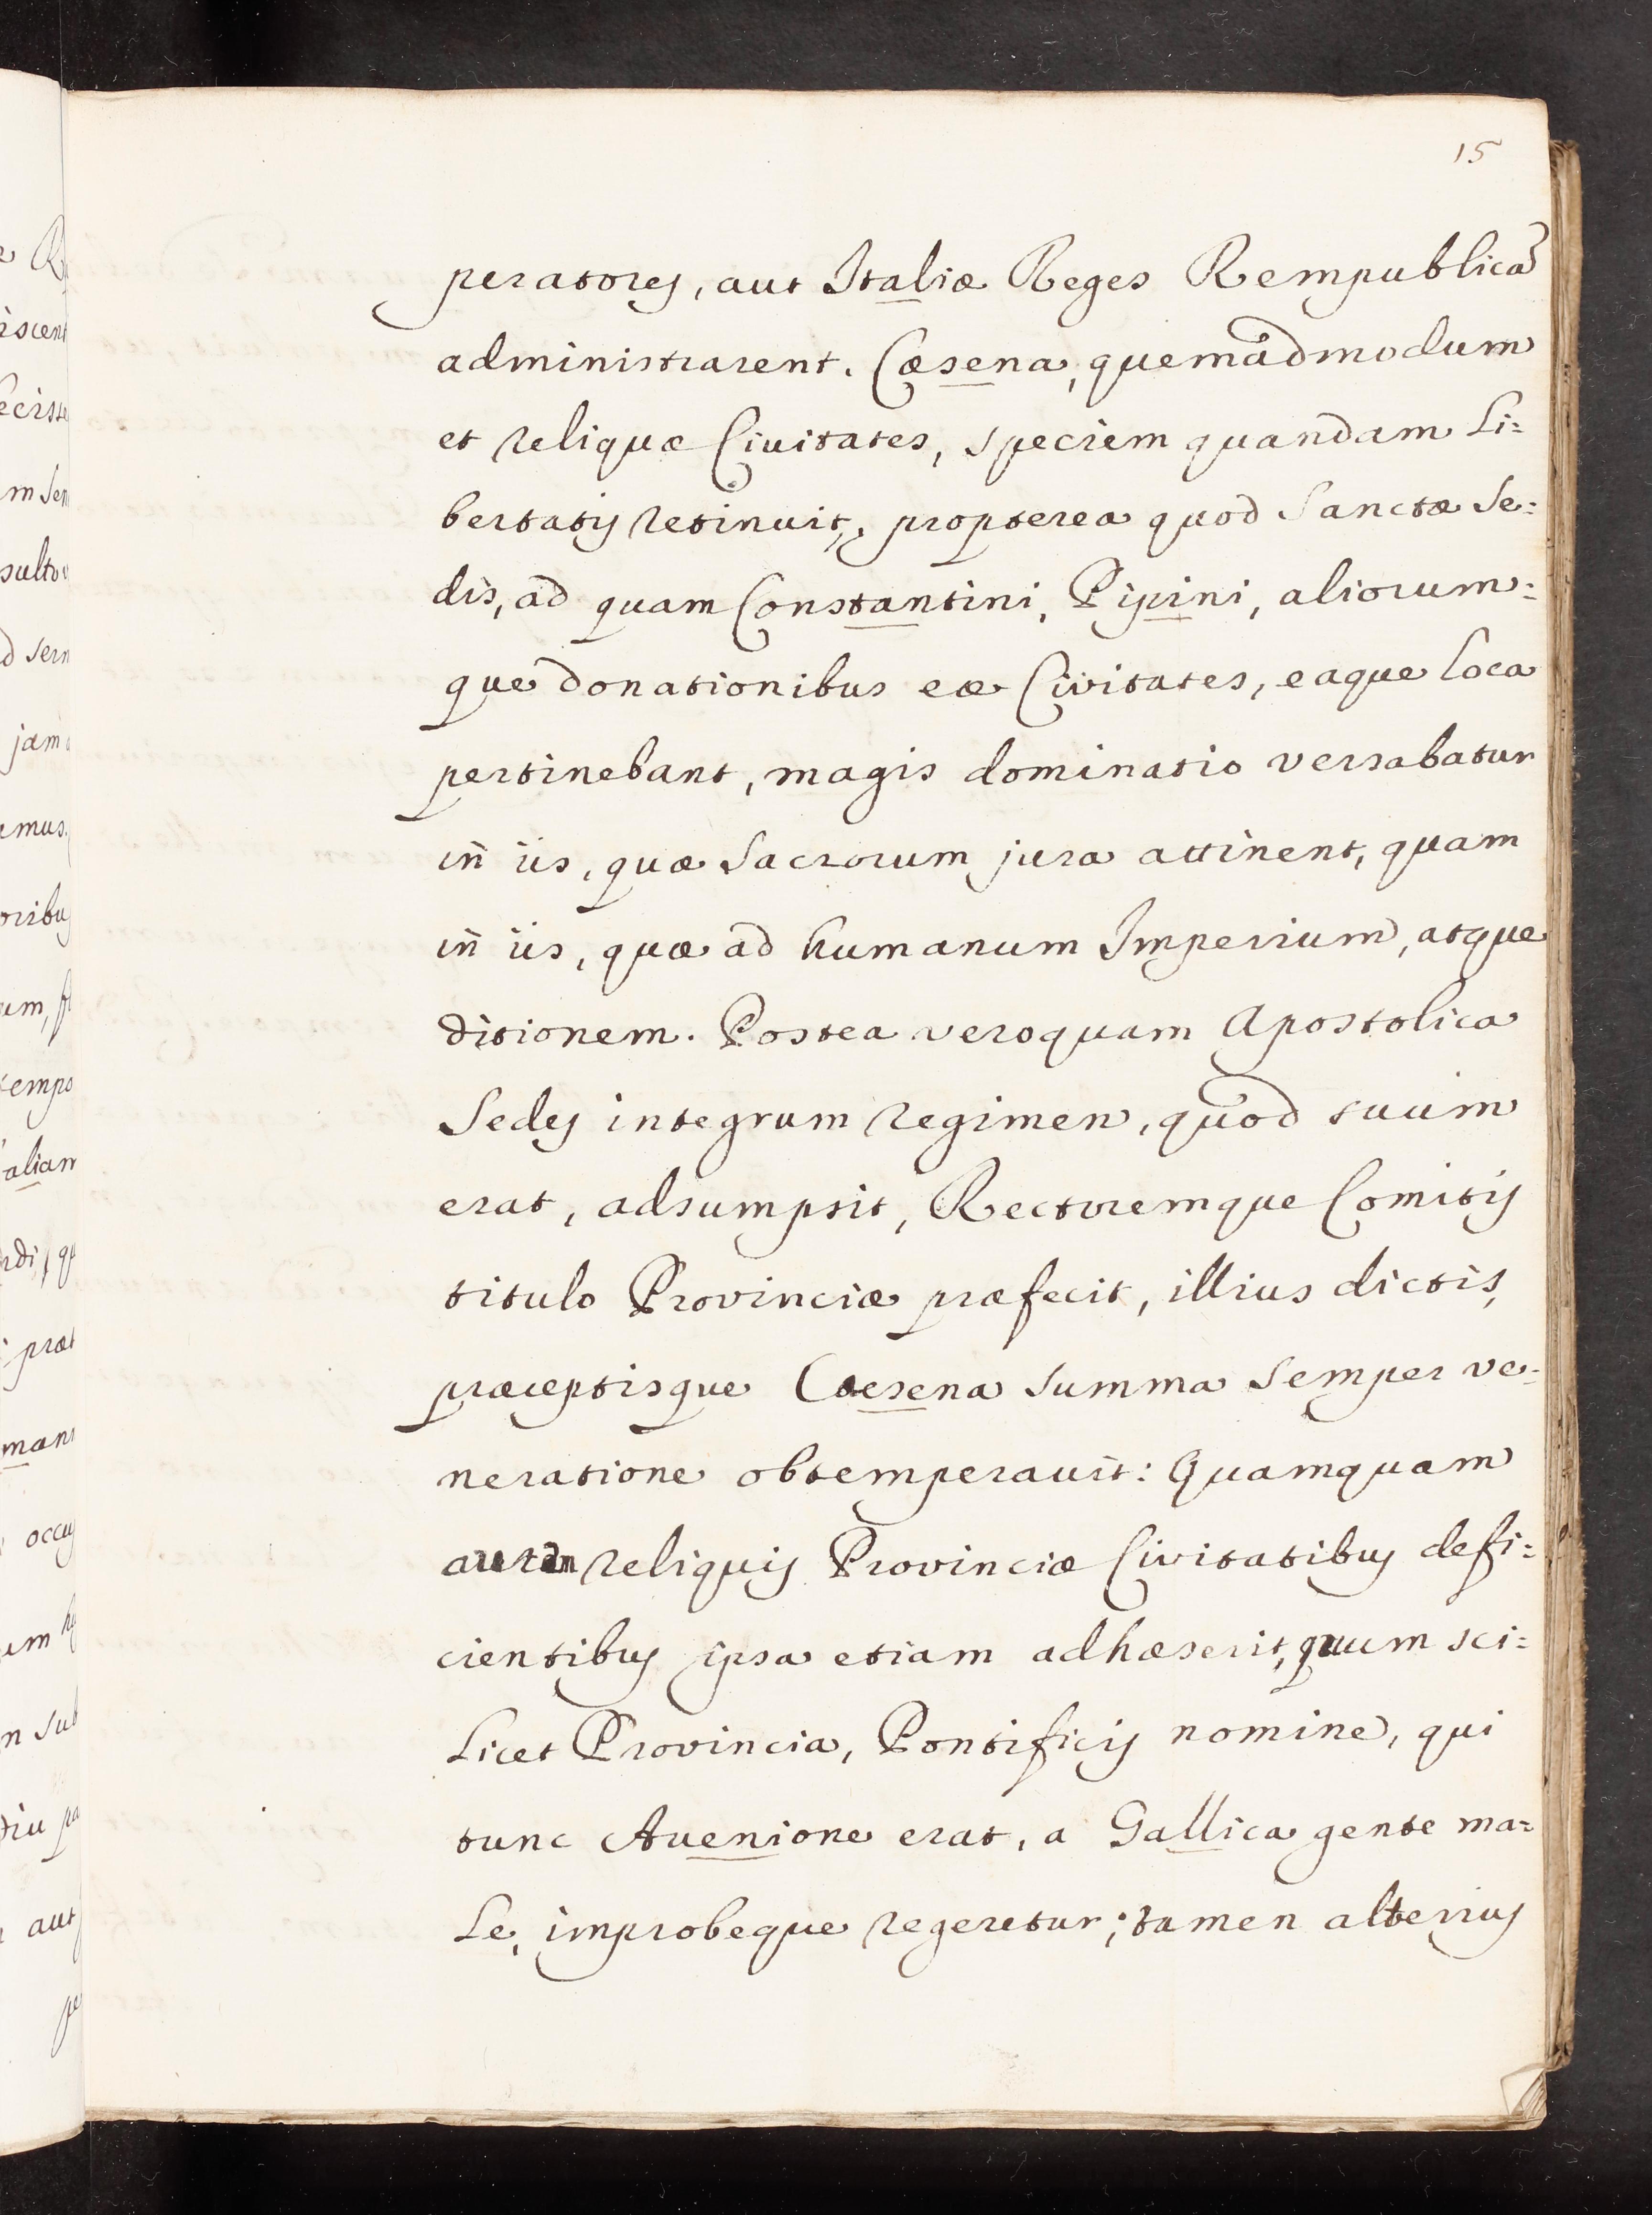 15
peratores, aut Italiæ Reges Rempublicã
administrarent. Cæsena, quemadmodum
et reliquæ Ciuitates, speciem quandam Li=
bertatis retinuit, propterea quod Sanctæ Se=
dis, ad quam Constantini, Pipini, aliorum=
que donationibus eæ Civitates, eaque loca
pertinebant, magis dominatio versabatur
in iis, quæ Sacrorum jura attinent, quam
in iis, quæ ad humanum Imperium, atque
ditionem. Postea veroquam Apostolica
Sedes integrum regimen, quod suum
erat, adsumpsit, Rectoremque Comitis
titulo Provinciæ præfecit, illius dictis,
præceptisque Caesena summa semper ve=
neratione obtemperauit: Quamquam
autem reliquis Provinciæ Civitatibus defi=
cientibus ipsa etiam adhæserit, quum sci=
licet Provincia, Pontificis nomine, qui
tunc Auenione erat, a Gallica gente ma=
le, improbeque regeretur; tamen alterius